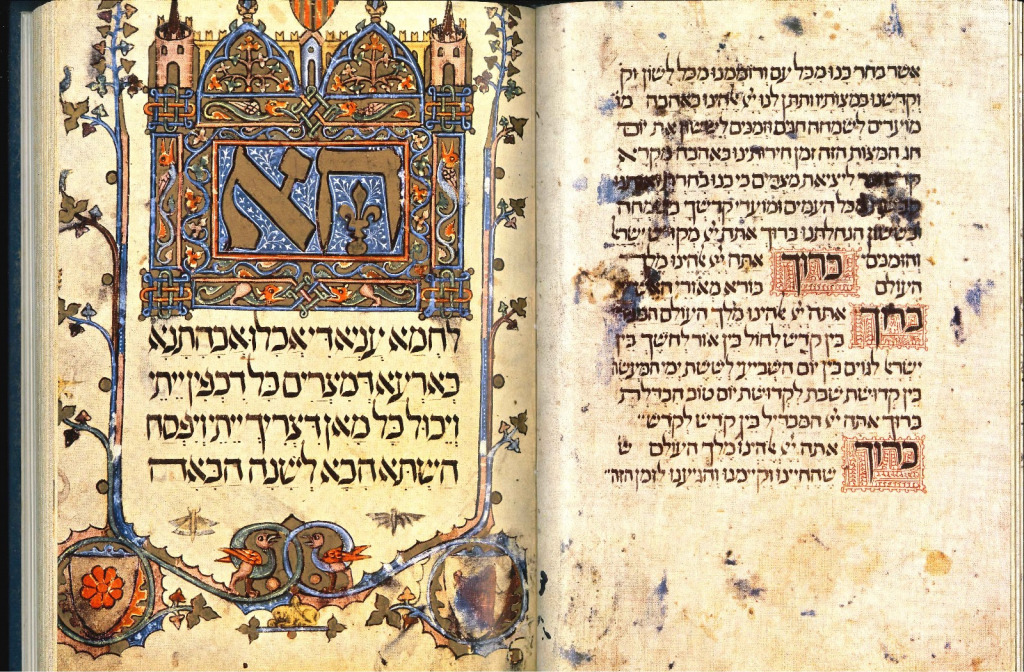 אשר בחר בנו מכל עם ורוממנו מכל לשון וק
וקדשנו במצותיו ותתן לנו יי אלהינו באהבה מו
מועדים לשמחה חגים וזמנים לששון את יום
חג המצות הזה זמן חירותינו באהבה מקרא
ליציאת מצרים כי בנו בחרת
מכל העמים ומועדי קדשך בשמחה
ובששון הנחלתנו ברוך אתה יי מקדש ישרא
והזמנים ברוך אתה יי אלהינו מלך
העולם בורא מאורי האש
ברוך אתה יי אלהינו מלך העולם המבדי
בין קדש לחול בין אור לחשך בין
ישראל לגוים בין יום השביעי לששת ימי המעשה
בין קדושת שבת לקדושת יום טוב הבדלת
ברוך אתה יי המבדיל בין קדש לקדש
ברוך אתה יי אלהינו מלך העולם ש
שהחיינו וקיימנו והגיענו לזמן הזה
הא
לחמא עניא די אכלו אבהתנא
בארעא דמצרים כל דכפין ייתי
וייכול כל מאן דצריך ייתי ויפסח
השתא הכא לשנה הבאה